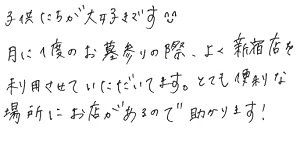 子供たちが大好きです
月に1度のお墓参りの際、よく新宿店を
利用させていただいてます。とても便利な
場所にお店があるので助かります!